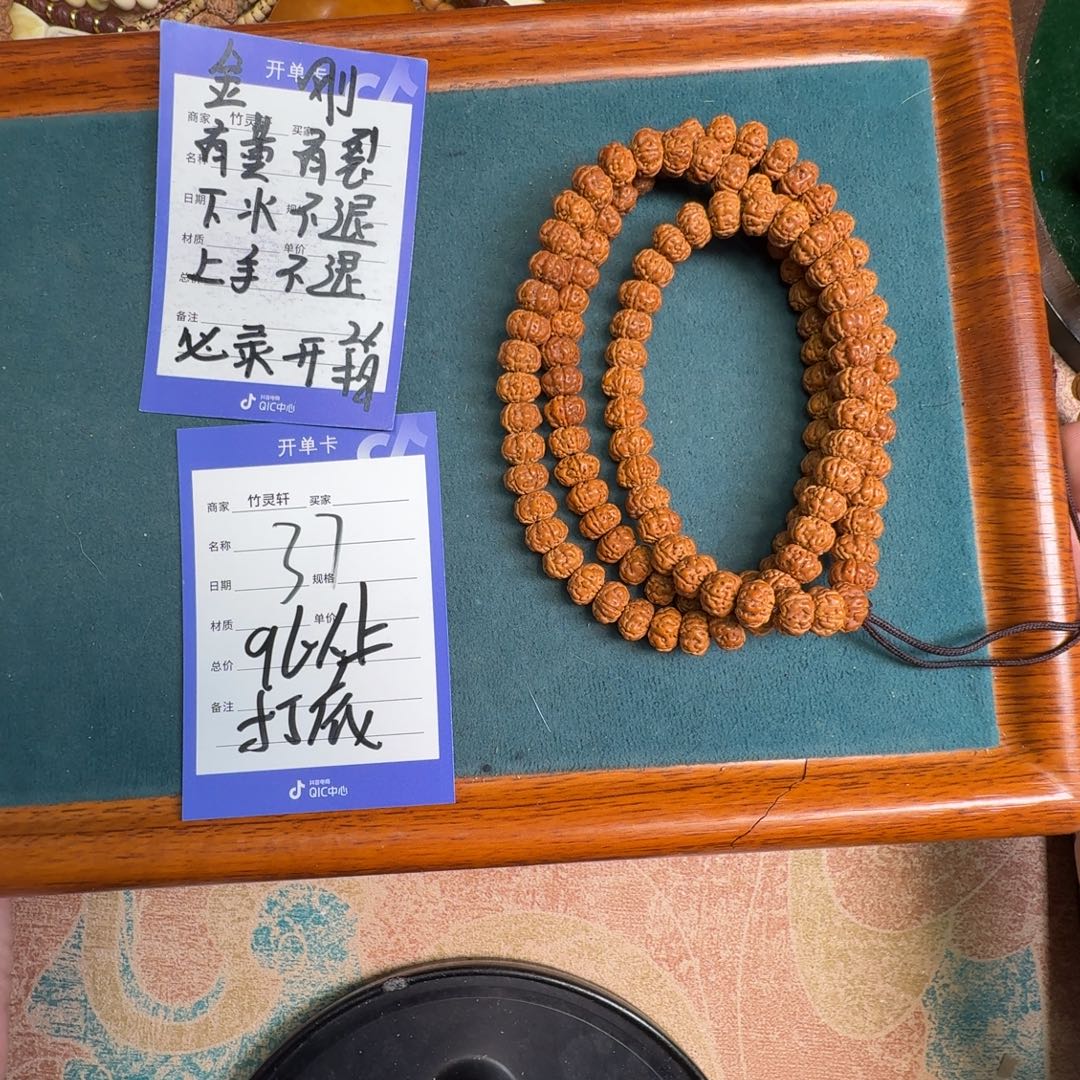 开单卡
金 刚
商家 竹灵 买家
有薰 有裂
名称
下水 不退
日期 规格
上手 不退
材质 单价
总价
备注
必录开箱
抖音电商
QIC中心
开单卡
商家 竹灵轩 买家
名称
37
日期 规格
材质 单价
总价
备注
打底
抖音电商
QIC中心